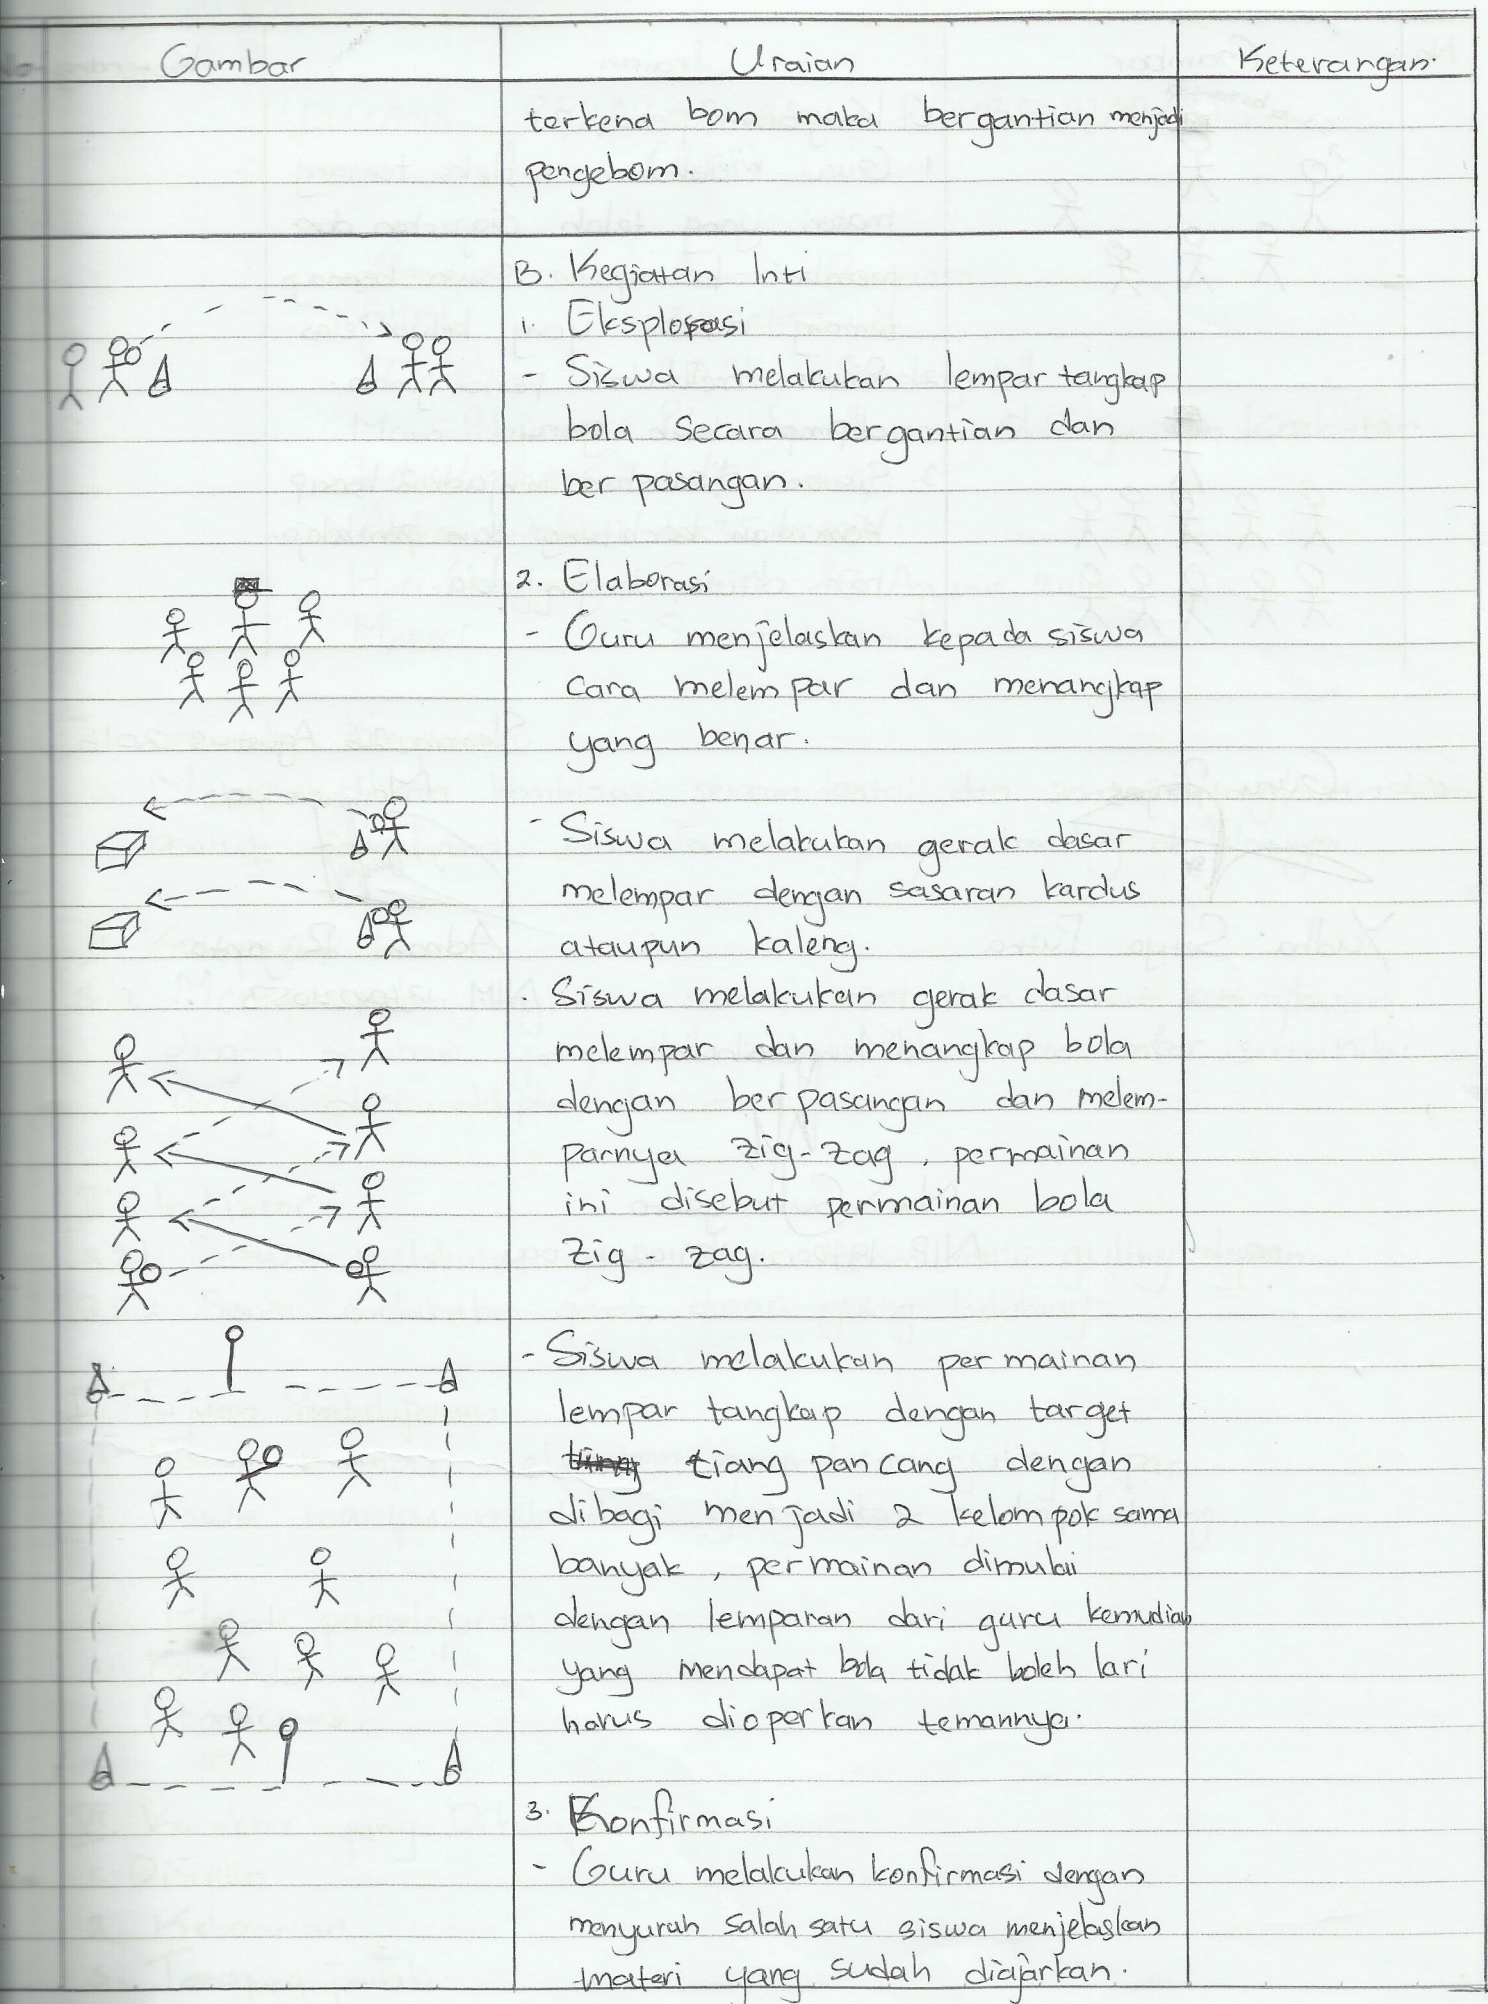 Gambar Uraian Keterangan.
terkena bom maka bergantian menjadi
pengebom.
B. Kegiatan Inti
1. Eksplorasi
- Siswa melakukan lempar tangkap
bola secara bergantian dan
ber pasangan.
2. Elaborasi
- Guru menjelaskan kepada siswa
cara melempar dan menangkap
yang benar.
- Siswa melakukan gerak dasar
melempar dengan sasaran kardus
ataupun kaleng.
. Siswa melakukan gerak dasar
melempar dan menangkap bola
dengan ber pasangan dan melem-
parnya zig-zag, permainan
ini disebut permainan bola
zig - zag.
- Siswa melakukan permainan
lempar tangkap dengan target
tiang pancang dengan
dibagi menjadi 2 kelompok sama
banyak, permainan dimulai
dengan lemparan dari guru kemudian
yang mendapat bola tidak boleh lari
harus dioperkan temannya.
3. Konfirmasi
- Guru melakukan konfirmasi dengan
menyuruh salah satu siswa menjelaskan
materi yang sudah diajarkan.